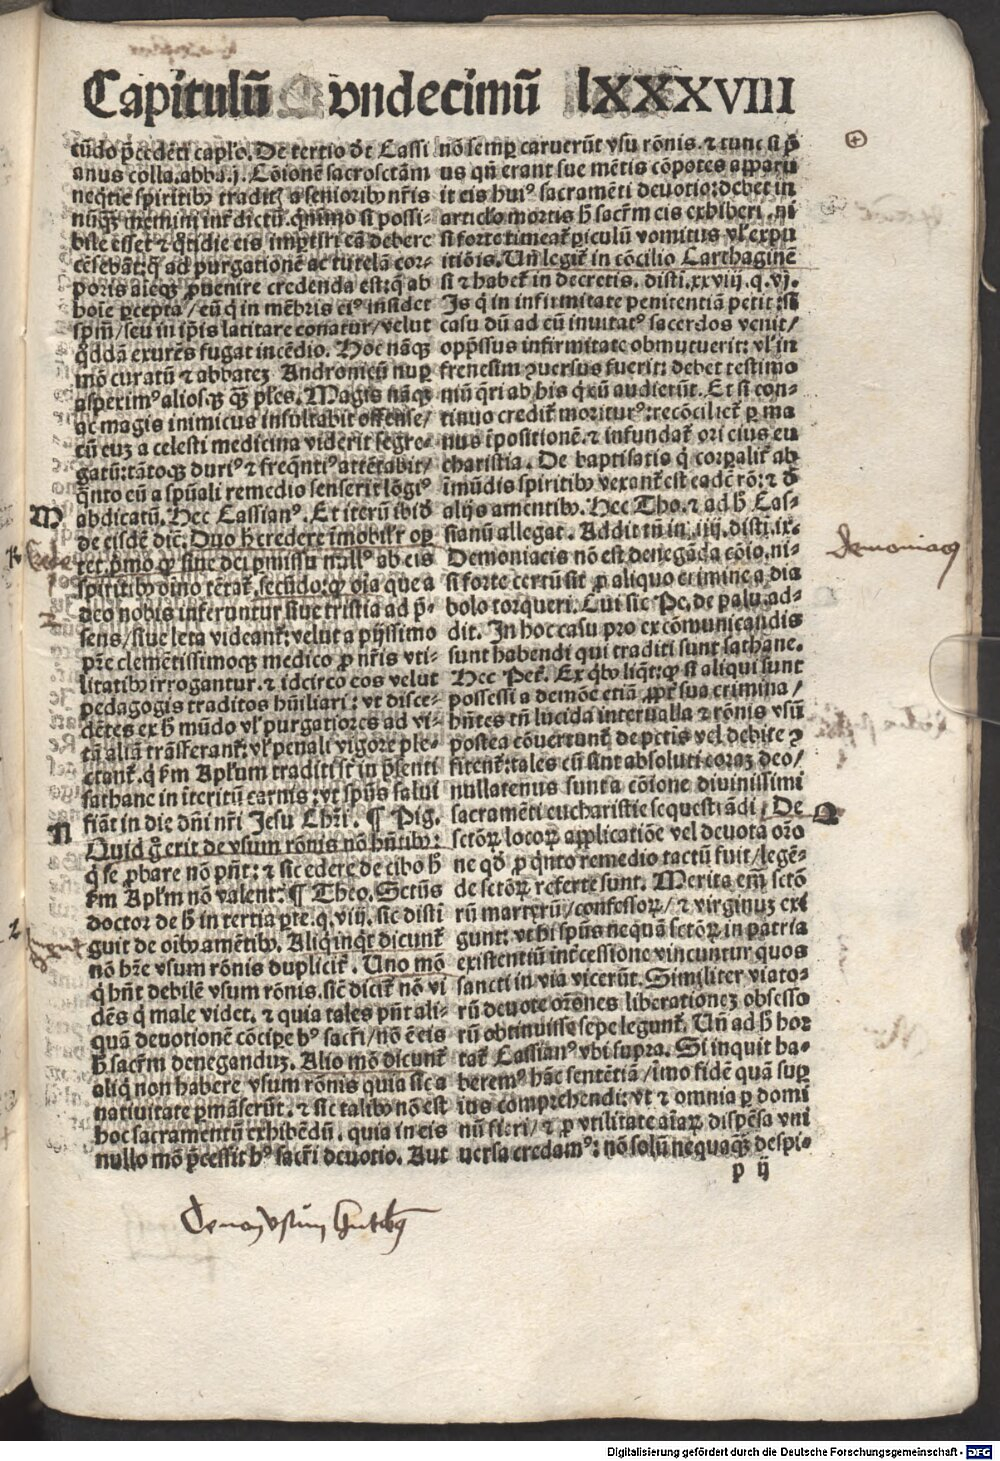 Capitulū vndecimū lXXXVIII
cūdo p̄cedēti capľo. De tertio dt̄ Cassi
anus colla. abba. j. Cōionē sacrosctām
neq̄tie spiritibꝰ traditꝭ a seniorib⁹ nr̄is
nūqꝫ memini intꝰdictū. qn̄immo si possi-
bile esset ⁊ q̊tidie eis imp̄tiri eā debere
cēsebāt: q̄ ad purgationē ac tutelā cor-
poris aīeqꝫ ꝓuenire credenda est: q̄ ab
hoīe p̱cepta / eū q̇ in mēbris ei⁹ insidet
spm̄ / seu in ip̄is latitare conatur / velut
q̊ddā exurēs fugat incēdio. Hoc nāqꝫ
mō curatū ⁊ abbateꝫ Andronicū nup̱
asperim⁹ alios qꝫ qꝫ pľes. Magis nāqꝫ
ac magis inimicus insultabit offense /
cū euꝫ a celesti medicina viderit segre-
gatū: tātoqꝫ duri⁹ ⁊ freq̄nti⁹ attērabit /
q̄nto eū a spūali remedio senserit lōgi⁹
M abdicatū. Hec Cassian⁹. Et iterū ibid̄
de eisdē dic̄. Duo h̄ credere īmobilr̄ op̱
tet. p̱mo ꝙ sine dei p̱missu null⁹ ab eis
spiritib⁹ oīno tētat̄. secūdo: ꝙ oīa que a
deo nobis inferuntur siue tristia ad p̄-
sens / siue leta videant̄: velut a pijssimo
pr̄e clemētissimoqꝫ medico ꝓ nr̄is vti-
litatib⁹ irrogantur. ⁊ idcirco eos velut
pedagogis traditos hūiliari: vt disce-
dētes ex h̄ mūdo vľ purgatiores ad vi-
tā aliā trāsferant̄: vľ penali vigore ple-
ctant̄. q̇ s̄m Apľum traditi st̄ in p̄senti
sathane in īteritū carnis: vt spūs salui
fiāt in die dn̄i nr̄i Jesu Chr̄i. ¶ Pig.
N Quid g̊ erit de vsum rōnis nō hn̄tib⁹:
q̇ se ꝓbare nō pn̄t: ⁊ sic edere de cibo h̄
s̄m Apľm nō valent: ¶ Theo. Sctūs
doctor de h̄ in tertia p̱te. q. viij. sic disti
guit de oīb⁹ amētib⁹. Aliq̇ inq̇t dicunt̄
nō hr̄e vsum rōnis duplicit̄. Uno mō
q̇ hn̄t debilē vsum rōnis. sic̄ dicit̄ nō vi
dēs q̇ male videt. ⁊ quia tales pn̄t ali-
quā deuotionē cōcipe h⁹ sacr̄i / nō ē eis
h̄ sacr̄m deneganduꝫ. Alio mō dicunt̄
aliq̇ non habere vsum rōnis quia sic a
natiuitate p̱māserūt. ⁊ sic talib⁹ nō est
hoc sacramentū exhibēdū. quia in eis
nullo mō p̄cessit h⁹ sacr̄i deuotio. Aut
nō semp̱ caruerūt vsu rōnis. ⁊ tunc si p̱
us qn̄ erant sue mētis cōpotes apparu
it eis hui⁹ sacramēti deuotio: debet in
articlo mortis h̄ sacr̄m eis exhiberi. ni
si forte timeat̄ p̱iculū vomitus vľ expu
itiōis. Un̄ legit̄ in cōcilio Carthaginē
si ⁊ habet̄ in decretis. disti. xxviij. q. vj.
Js q̇ in infirmitate penitentiā petit: si
casu dū ad eū inuitat⁹ sacerdos venit /
opp̄ssus infirmitate obmutuerit: vľ in
frenesim ꝯuersus fuerit: debet testimo
niū q̄ri ab his q̇ eū audierūt. Et si con-
tinuo credit̄ moritur⁹: recōciliet̄ p̱ ma
nus īpositionē. ⁊ infundat̄ ori eius eu
charistia. De baptisatis q̇ corp̱alit̄ ab
īmūdis spiritib⁹ vexant̄ est eadē rō: ⁊ d̄
alijs amentib⁹. Hec Tho. ⁊ ad h̄ Cas-
sianū allegat. Addit tn̄ in. iiij. disti. ix.
Demoniacis nō est denegāda cōio. ni-
si forte certū sit ꝓ aliquo crimine a dia
bolo torqueri. Cui sic Pe. de palu. ad-
dit. In hoc casu pro excōmunicandis
sunt habendi qui traditi sunt sathane.
Hec Pet̄. Ex q̇b⁹ liq̄t: ꝙ si aliqui sunt
possessi a demōe etiā ꝓpt̄ sua crimina /
hn̄tes tn̄ lucida interualla ⁊ rōnis vsū
postea cōuertunt̄ de pctis vel debite ꝯ
fitent̄: tales cū sint absoluti coraꝫ deo /
nullatenus sunt a cōione diuinissimi
sacramēti eucharistie sequestrādi. De O
sctōꝝ locoꝝ applicatiōe vel deuota or̄o
ne qd̄ p̱ q̄nto remedio tactū fuit / legē-
de sctōꝝ referte sunt. Merita em̄ sctō
rū martyrū / confessoꝝ / ⁊ virginuꝫ exi
gunt: vt hi spūs nequā sctōꝝ in patria
existentiū int̄cessione vincuntur quos
sancti in via vicerūt. Similiter viato-
rū deuote or̄ones liberationeꝫ obsesso
rū obtinuisse sepe legunt̄. Un̄ ad h̄ hor
tat̄ Cassian⁹ vbi supra. Si inquit ha-
berem⁹ hāc sentētiā / imo fidē quā sup̱
ius comprehendi: vt ⁊ omnia p̱ domi
nū fieri / ⁊ ꝓ vtilitate aīaꝝ dispēsa vni
uersa credam⁹: nō solū nequaqꝫ despi-
p ij
demoniacꝰ
De non vsum hn̄tibꝰ
Digitalisierung gefördert durch die Deutsche Forschungsgemeinschaft - DFG